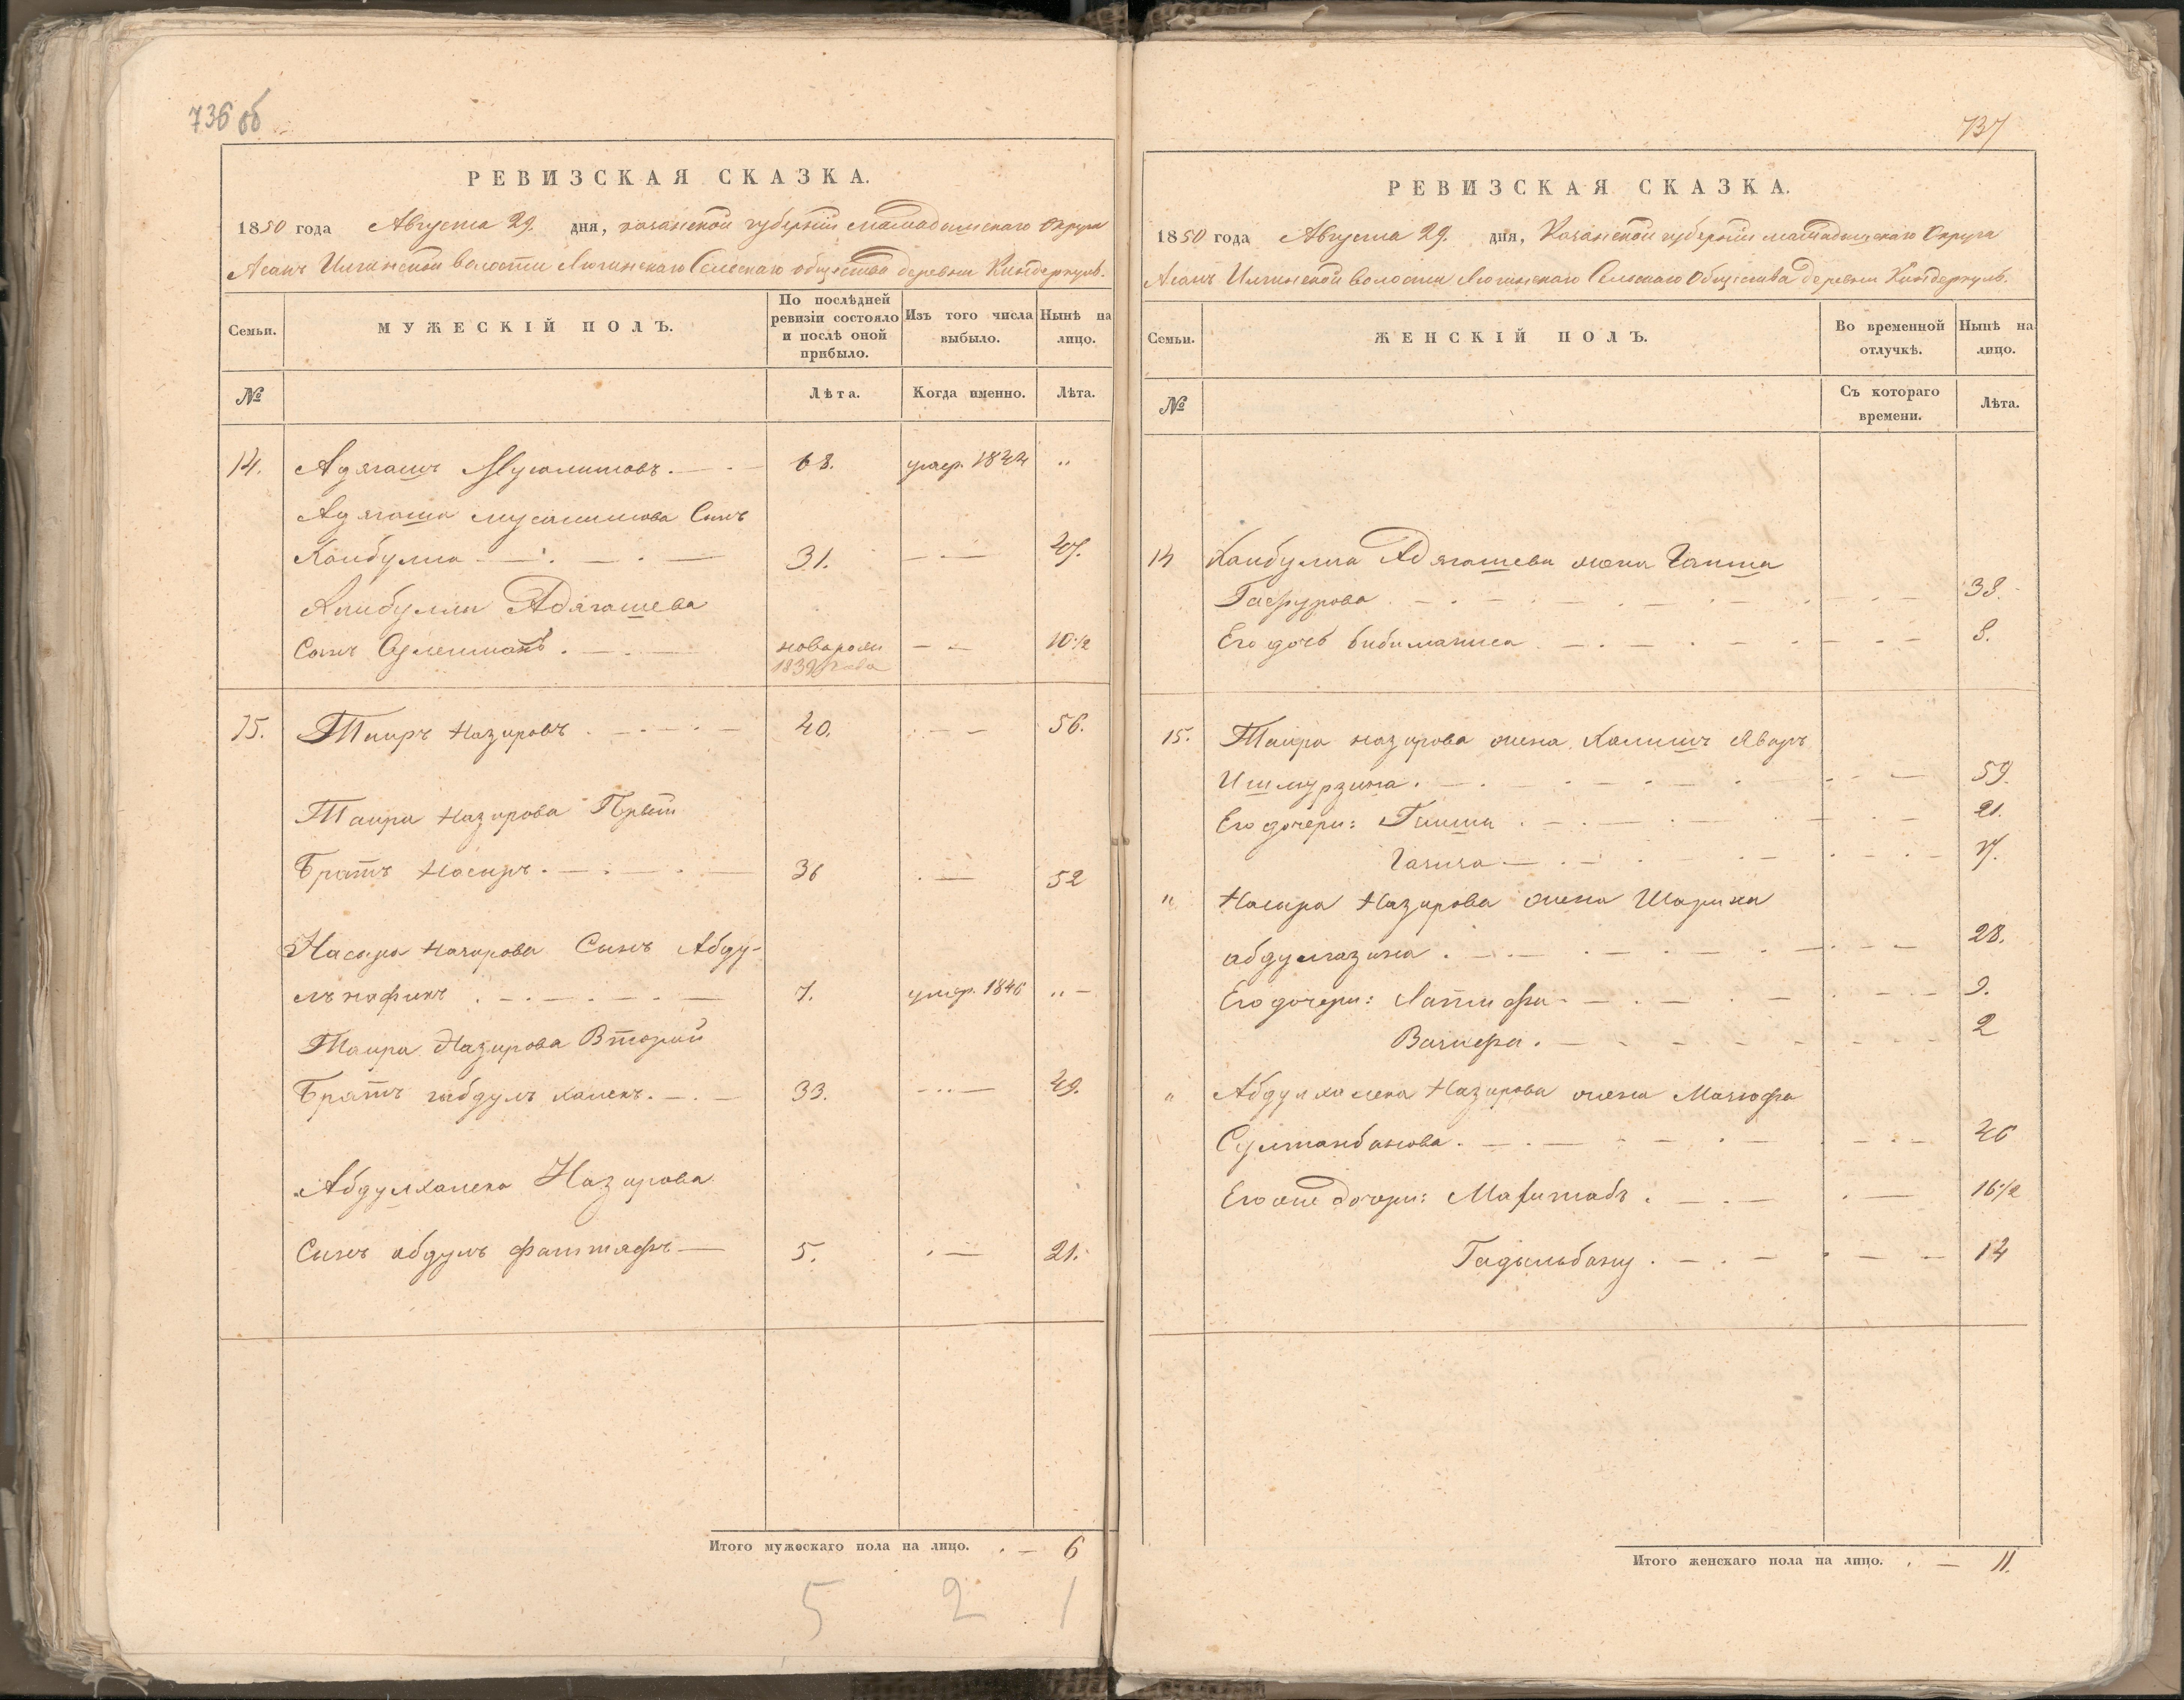 736 об
РЕВИЗСКАЯ СКАЗКА.
1850 года Августа 29. дня, казанской губернии мамадышскаго Округа
Асанъ Илгинской волости Лючинскаго Сельскаго общества деревни Киндеркуль.
Семьи.
МУЖЕСКІЙ ПОЛЪ.
По послѣдней ревизіи состояло и послѣ оной прибыло.
Изъ того числа выбыло.
Нынѣ на лицо.
№
Лѣта.
Когда именно.
Лѣта.
14. Адягашъ Мусалимовъ. 68. умер. 1844 "
Адягаша мусалимова Сынъ
Каибулла 31. 47.
Каибуллы Адягашева
Сынъ новорожд 10 1/2
1839 года
15. Таиръ Назировъ 40. 56.
Таира Назирова Првый
Братъ Насыръ. 36 52
Насыра Назирова Сынъ Абду-
лъ нафикъ 7. умер. 1846 "
Таира Назирова Вторый
Братъ габдулъ халекъ. 33. 49.
Абдулхалека Назирова
Сынъ абдулъ фаттяфъ 5. 21.
Итого мужескаго пола на лицо. 6
5 2 1
737
РЕВИЗСКАЯ СКАЗКА.
1850 года Августа 29. дня, Казанской губернии мамадышскаго Округа
Асанъ Илгинской волости Лючинскаго Сельскаго Общества деревни Киндеркуль.
Семьи.
ЖЕНСКІЙ ПОЛЪ.
Во временной отлучкѣ.
Нынѣ на лицо.
№
Съ котораго времени.
Лѣта.
14 Каибуллы Адягашева жена Гаиша
Гафурова 38.
Его дочь бибиманиса 8.
15. Таира назирова жена Явгаръ
Ишмурзина. 59.
Его дочери: Гаиша 21.
17.
" Насыра Назирова жена Шарифа
абдулгазина. 28.
Его дочери: Латифа 9.
2
" Абдулхалека Назирова жена Магюфа
Султанбакова. 46
Его же дочери: Магитабъ. 16 1/2
Гадыльбану. 14
Итого женскаго пола на лицо. 11.